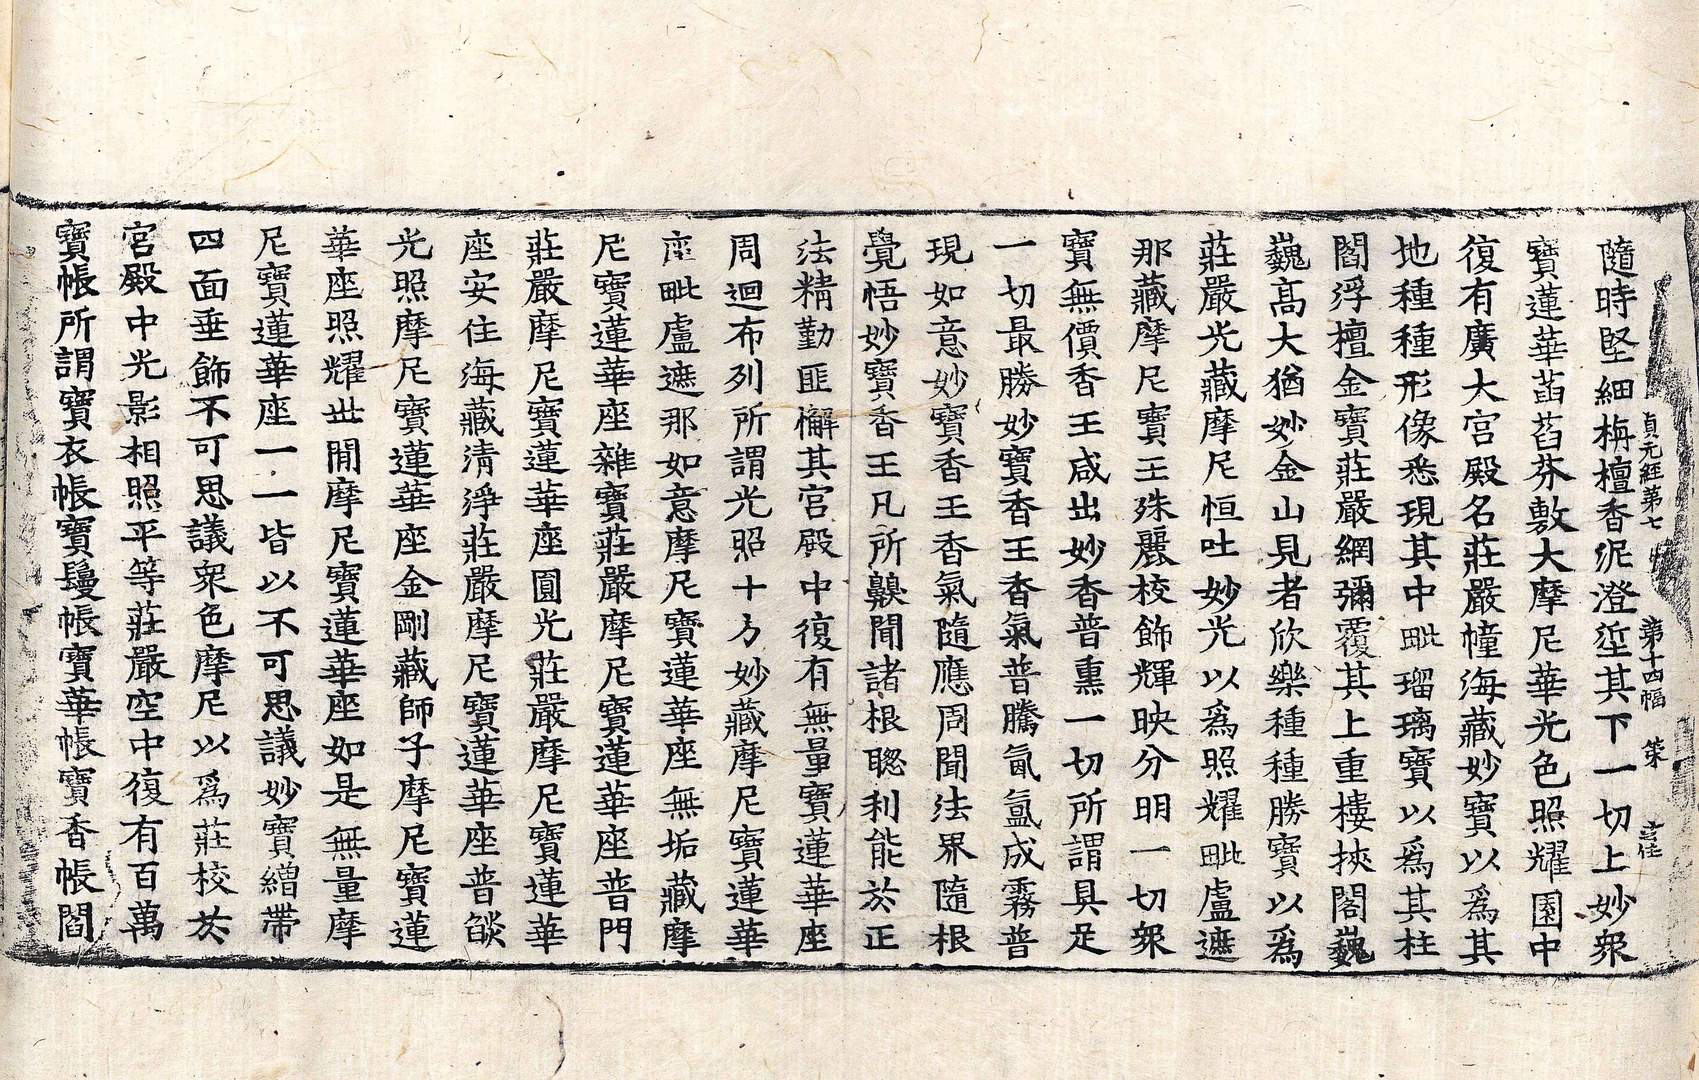 貞元經第七 第十四幅 策
隨時堅細栴檀香泥澄垽其下一切上妙衆
寶蓮華菡萏芬敷大摩尼華光色照耀園中
復有廣大宮殿名莊嚴幢海藏妙寶以爲其
地種種形像悉現其中毗瑠璃寶以爲其柱
閻浮檀金寶莊嚴網彌覆其上重樓挾閣巍
巍髙大猶妙金山見者欣樂種種勝寶以爲
莊嚴光藏摩尼恒吐妙光以爲照耀毗盧遮
那藏摩尼寶王殊麗校飾輝映分明一切衆
寶無價香王咸出妙香普熏一切所謂具足
一切最勝妙寶香王香氣普騰氤氳成霧普
現如意妙寶香王香氣隨應周聞法界隨根
覺悟妙寶香王凡所齅聞諸根聦利能於正
法精勤匪懈其宮殿中復有無量寶蓮華座
周迴布列所謂光照十方妙藏摩尼寶蓮華
座毗盧遮那如意摩尼寶蓮華座無垢藏摩
尼寶蓮華座雜寶莊嚴摩尼寶蓮華座普門
莊嚴摩尼寶蓮華座圓光莊嚴摩尼寶蓮華
座安住海藏清淨莊嚴摩尼寶蓮華座普燄
光照摩尼寶蓮華座金剛藏師子摩尼寶蓮
華座照耀世閒摩尼寶蓮華座如是無量摩
尼寶蓮華座一一皆以不可思議妙寶繒帶
四面垂飾不可思議衆色摩尼以爲莊校於
宮殿中光影相照平等莊嚴空中復有百萬
寶帳所謂寶衣帳寶鬘帳寶華帳寶香帳閻